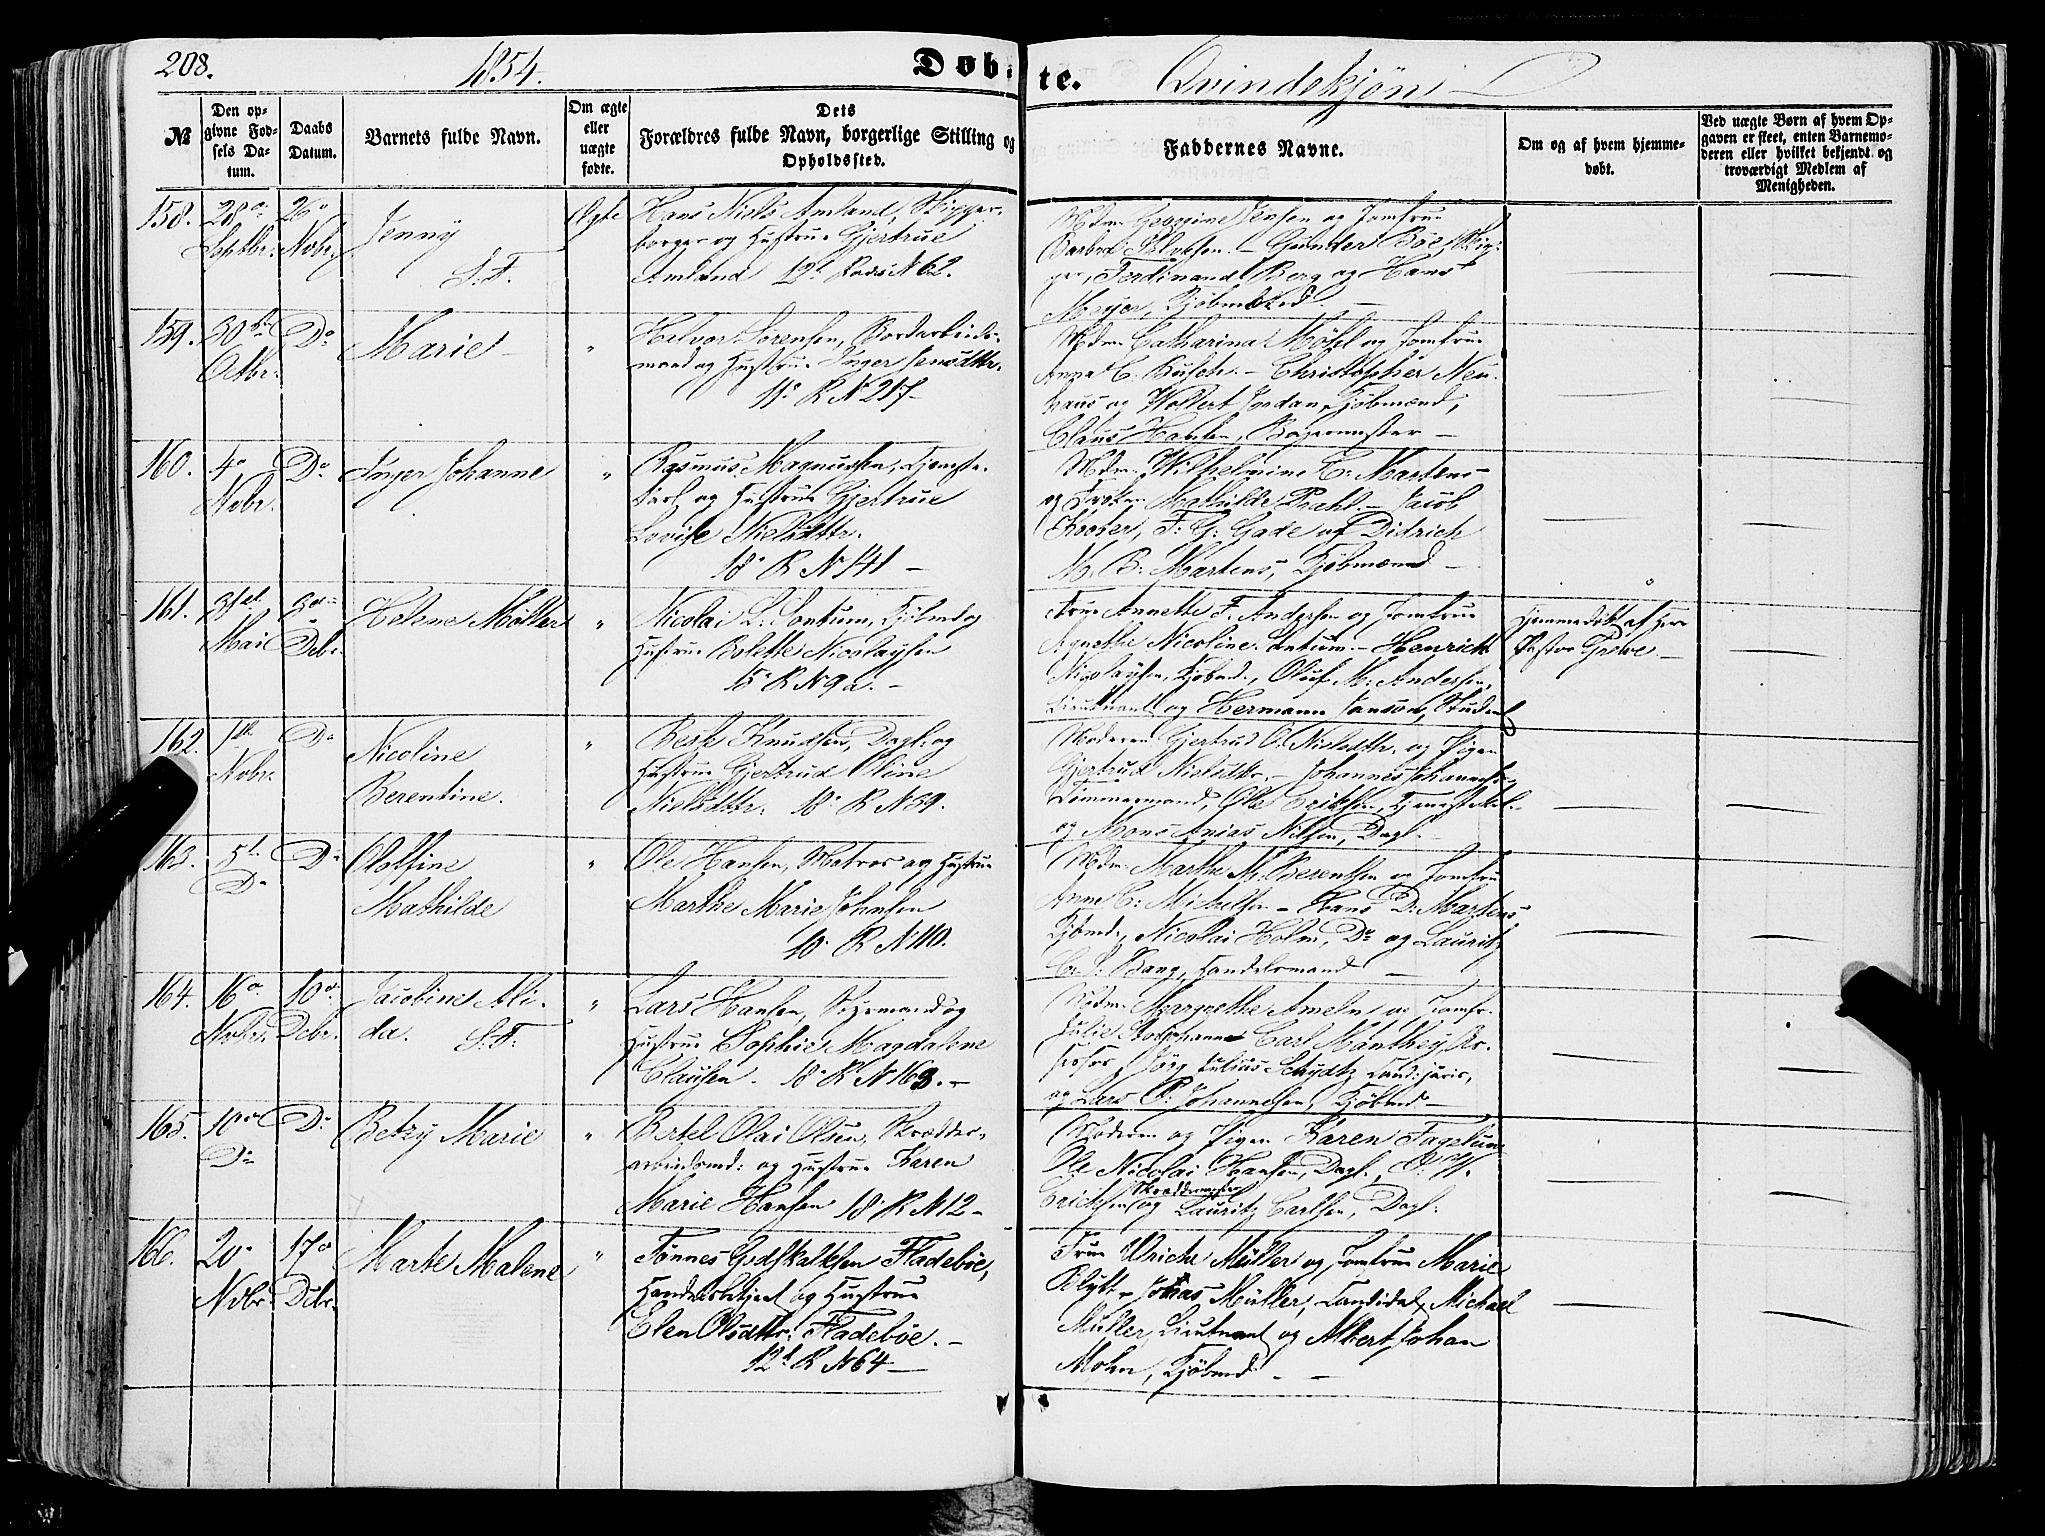 208. 1854. Døb- te. Qvindekjøn
№ Den opgivne Fødsels Datum. Daabs Datum. Barnets fulde Navn. Om ægte eller uægte fødte. Dets Forældres fulde Navn, borgerlige Stilling og Opholdssted. Faddernes Navne. Om og af hvem hjemmedøbt. Ved uægte Børn af hvem Opgaven er skeet, enten Barnemoderen eller hvilket bekjendt og troværdigt Medlem af Menigheden.
158. 28de Septbr. 26de Novbr. Jenny S. F. Ægte
Hans Niels Amland, Skipper-
borger og Hustrue Gjertrue
Amland 12t Rode N 62.
Mdm. Georgine Jensen og Jomfrue
Gunder Bøe, Skip-
per, Ferdinand Berg og Hans
Meyer, Kjøbmænd. —
159. 30te Octbr. Do Marie „
Halvor Sørensen, Bordarbeids-
mand og Hustrue Inger Jensdttr.
11t R N 217 —
Mdm. Catharina Møhl og Jomfrue
Anna C. Busch. — Christopher Neu-
haus og Wollert Jordan, Kjøbmænd,
Claus Hansen, Bagermester —
160. 4de Novbr. Do Inger Johanne „
Rasmus Magnussen, Tjeneste-
karl og Hustrue Gjertrue
Lovise Nielsdttr.
18de R N 141 —
Mdm. Wilhelmine C. Martens
og Frøken Mathilde Prahl. — Jacob
F. G. Gade og Didrich
M. B. Martens, Kjøbmænd —
161. 31te Mai 3die Debr. Helene Møller „
Nicolai L. Sontum, Kjøbmd og
Hustrue Bolette Nicolaysen
15de R N 9 a. —
Frue Annette F. Andersen og Jomfrue
Agnethe Nicoline Sontum. — Henrich
Nicolaysen, Kjøbmd., Oluf M. Andersen,
Lieutenant og Hermann Janson, Student
Hjemmedøbt af Herr
Pastor Greve. —
162. 1te Novbr. Do Nicoline
Berentine. „
Knudsen, Dagl. og
Hustrue Gjertrud Oline
Nielsdttr. 18de R N 39.
Moderen Gjertrud O. Nielsdttr. og Pigen
Gjertrud Nielsdttr. — Johannes Johannesen,
Tømmermand, Ole Eriksen, Tjenestekarl
og Mons Anias Nilsen, Dagl. —
163. 5te Do Do Olefine
Mathilde „
Ole Hansen, Matros og Hustrue
Marthe Marie Johnsen
10de R N 110.
Mdm. Marthe M. Berentsen og Jomfrue
Anne C. Michelsen — Hans D. Martens
Kjbmd., Nicolai Holm, Do og Lauritz
C. S. Bang, Handelsmand —
164. 16de Novbr. 10de Debr. Jacobine Ali-
da. S. F. „
Lars Hansen, Styrmand og
Hustrue Sophie Magdalene
Clausen. 18de R N 163. —
Mdm. Margrethe Ameln og Jomfr.
Julie Carl Manthey As-
sessor, Jörg Julius Schydtz Cand. juris,
og Lars P. Johannesen, Kjøbmd —
165. 10de Do Do Betzy Marie „
Bertel Olai Olsen, Skrædder-
arbeidsmd. og Hustrue Karen
Marie Hansen 18de R N 12 —
Moderen og Pigen Karen Fagelund
Ole Nicolai Hansen, Dagl., O. H.
Erichsen Skræddermester og Lauritz Carlsen, Dagl.
166. 20de Novbr. 17de Debr. Marte Malene „
Tønnes Godskalksen Fladebøe,
Handelsbetjent og Hustrue
Elen Olsdttr. Fladebøe. —
12t R N 64 —
Frue Ulriche Müller og Jomfrue Marie
Blytt — Jonas Müller, Candidat, Michael
Müller, Lieutnant og Albert Johan
Mohn, Kjøbmd. —